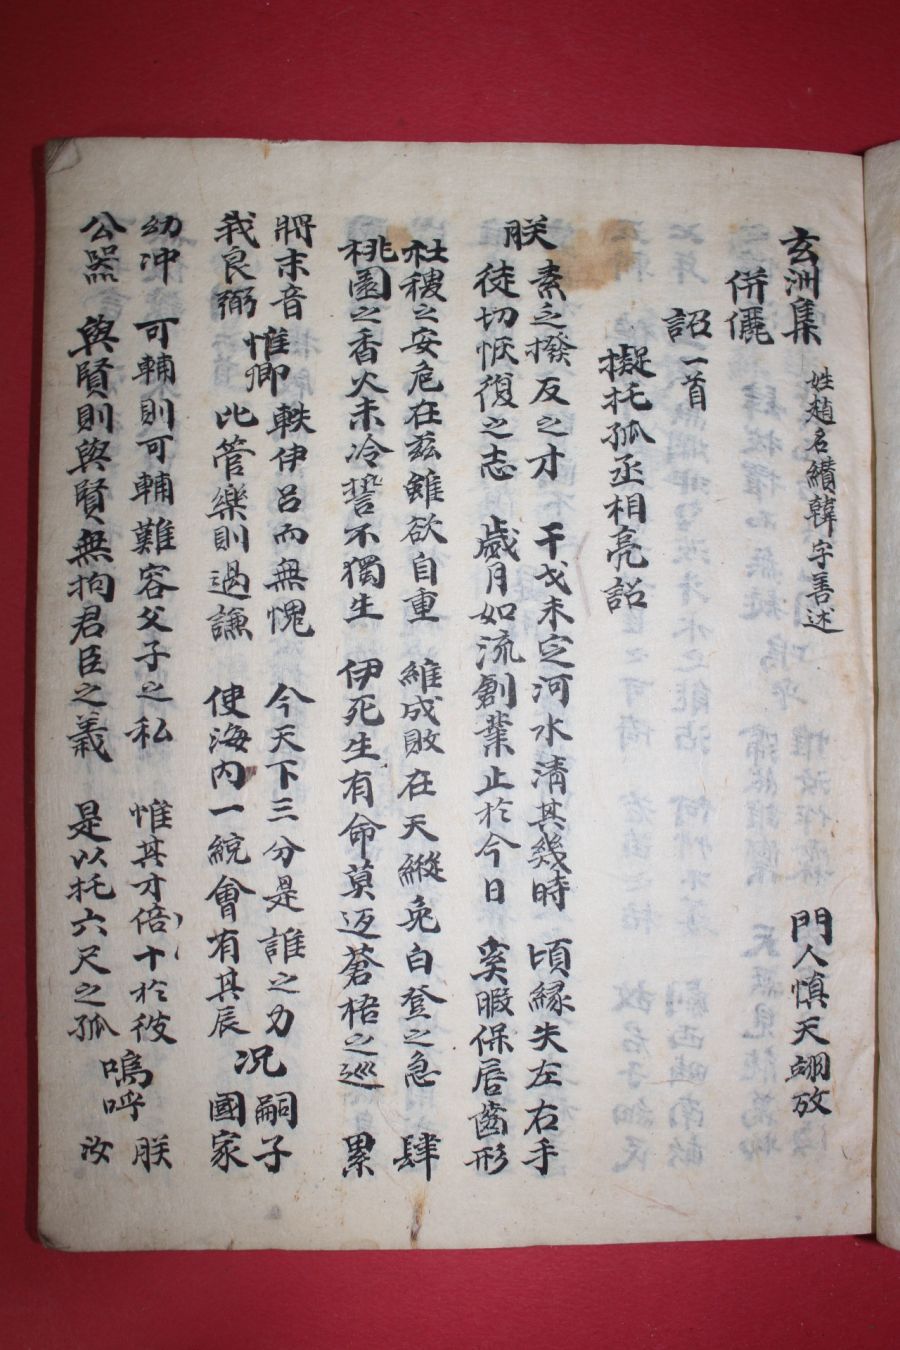 玄洲集 姓趙名纘韓字善述 門人愼天翊攷
倂儷
詔一首
擬托孤丞相亮詔
朕
素乏撥反之才 干戈未定河水清其幾時 頃緣失左右手
徒切恢復之志 歲月如流創業止於今日 奚暇保唇齒形
社稷之安危在玆雖欲自重 維成敗在天縱免白登之急 肆
桃園之香火未冷誓不獨生 伊死生有命莫返蒼梧之巡 累
將末音 惟卿 軼伊呂而無愧 今天下三分是誰之力 况 嗣子
我良弼 比管樂則過謙 使海內一統會有其辰 國家
幼冲 可輔則可輔難容父子之私 惟其才倍十於彼 嗚呼 朕
公器 與賢則與賢無拘君臣之義 是以托六尺之孤 汝